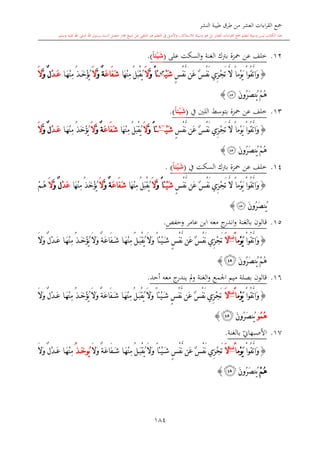 جمع القراءات العشر من طرق طيبة النشر
١٢. خلف عن حمزة بترك الغنة والسكت على (شَيْـًٔا).
﴿ وَاتَّقُوا۟ يَوْمًا لَّا تَجْزِى نَفْسٌ عَن نَّفْسٍ شَيْـًٔا وَلَا يُقْبَلُ مِنْهَا شَفَـٰعَةٌ وَلَا يُؤْخَذُ مِنْهَا عَدْلٌ وَلَا
هُمْ يُنصَرُونَ ﴾
١٣. خلف عن حمزة بتوسط اللين في (شَيْـًٔا).
﴿ وَاتَّقُوا۟ يَوْمًا لَّا تَجْزِى نَفْسٌ عَن نَّفْسٍ شَيْـًٔا وَلَا يُقْبَلُ مِنْهَا شَفَـٰعَةٌ وَلَا يُؤْخَذُ مِنْهَا عَدْلٌ وَلَا
هُمْ يُنصَرُونَ ﴾
١٤. خلف عن حمزة بترك السكت في (شَيْـًٔا).
﴿ وَاتَّقُوا۟ يَوْمًا لَّا تَجْزِى نَفْسٌ عَن نَّفْسٍ شَيْـًٔا وَلَا يُقْبَلُ مِنْهَا شَفَـٰعَةٌ وَلَا يُؤْخَذُ مِنْهَا عَدْلٌ وَلَا هُمْ
يُنصَرُونَ ﴾
١٥. قالون بالغنة واندرج معه ابن عامر وحفص.
﴿ وَاتَّقُوا۟ يَوْمًا لَّا تَجْزِى نَفْسٌ عَن نَّفْسٍ شَيْـًٔا وَلَا يُقْبَلُ مِنْهَا شَفَـٰعَةٌ وَلَا يُؤْخَذُ مِنْهَا عَدْلٌ وَلَا
هُمْ يُنصَرُونَ ٤٨ ﴾
١٦. قالون بصلة ميم الجمع والغنة ولم يندرج معه أحد.
﴿ وَاتَّقُوا۟ يَوْمًا لَّا تَجْزِى نَفْسٌ عَن نَّفْسٍ شَيْـًٔا وَلَا يُقْبَلُ مِنْهَا شَفَـٰعَةٌ وَلَا يُؤْخَذُ مِنْهَا عَدْلٌ وَلَا
هُمُۥ يُنصَرُونَ ٤٨ ﴾
١٧. الأصبهانيّ بالغنة.
﴿ وَاتَّقُوا۟ يَوْمًا لَّا تَجْزِى نَفْسٌ عَن نَّفْسٍ شَيْـًٔا وَلَا يُقْبَلُ مِنْهَا شَفَـٰعَةٌ وَلَا يُوخَذُ مِنْهَا عَدْلٌ وَلَا
هُمْ يُنصَرُونَ ٤٨ ﴾
١٨٤